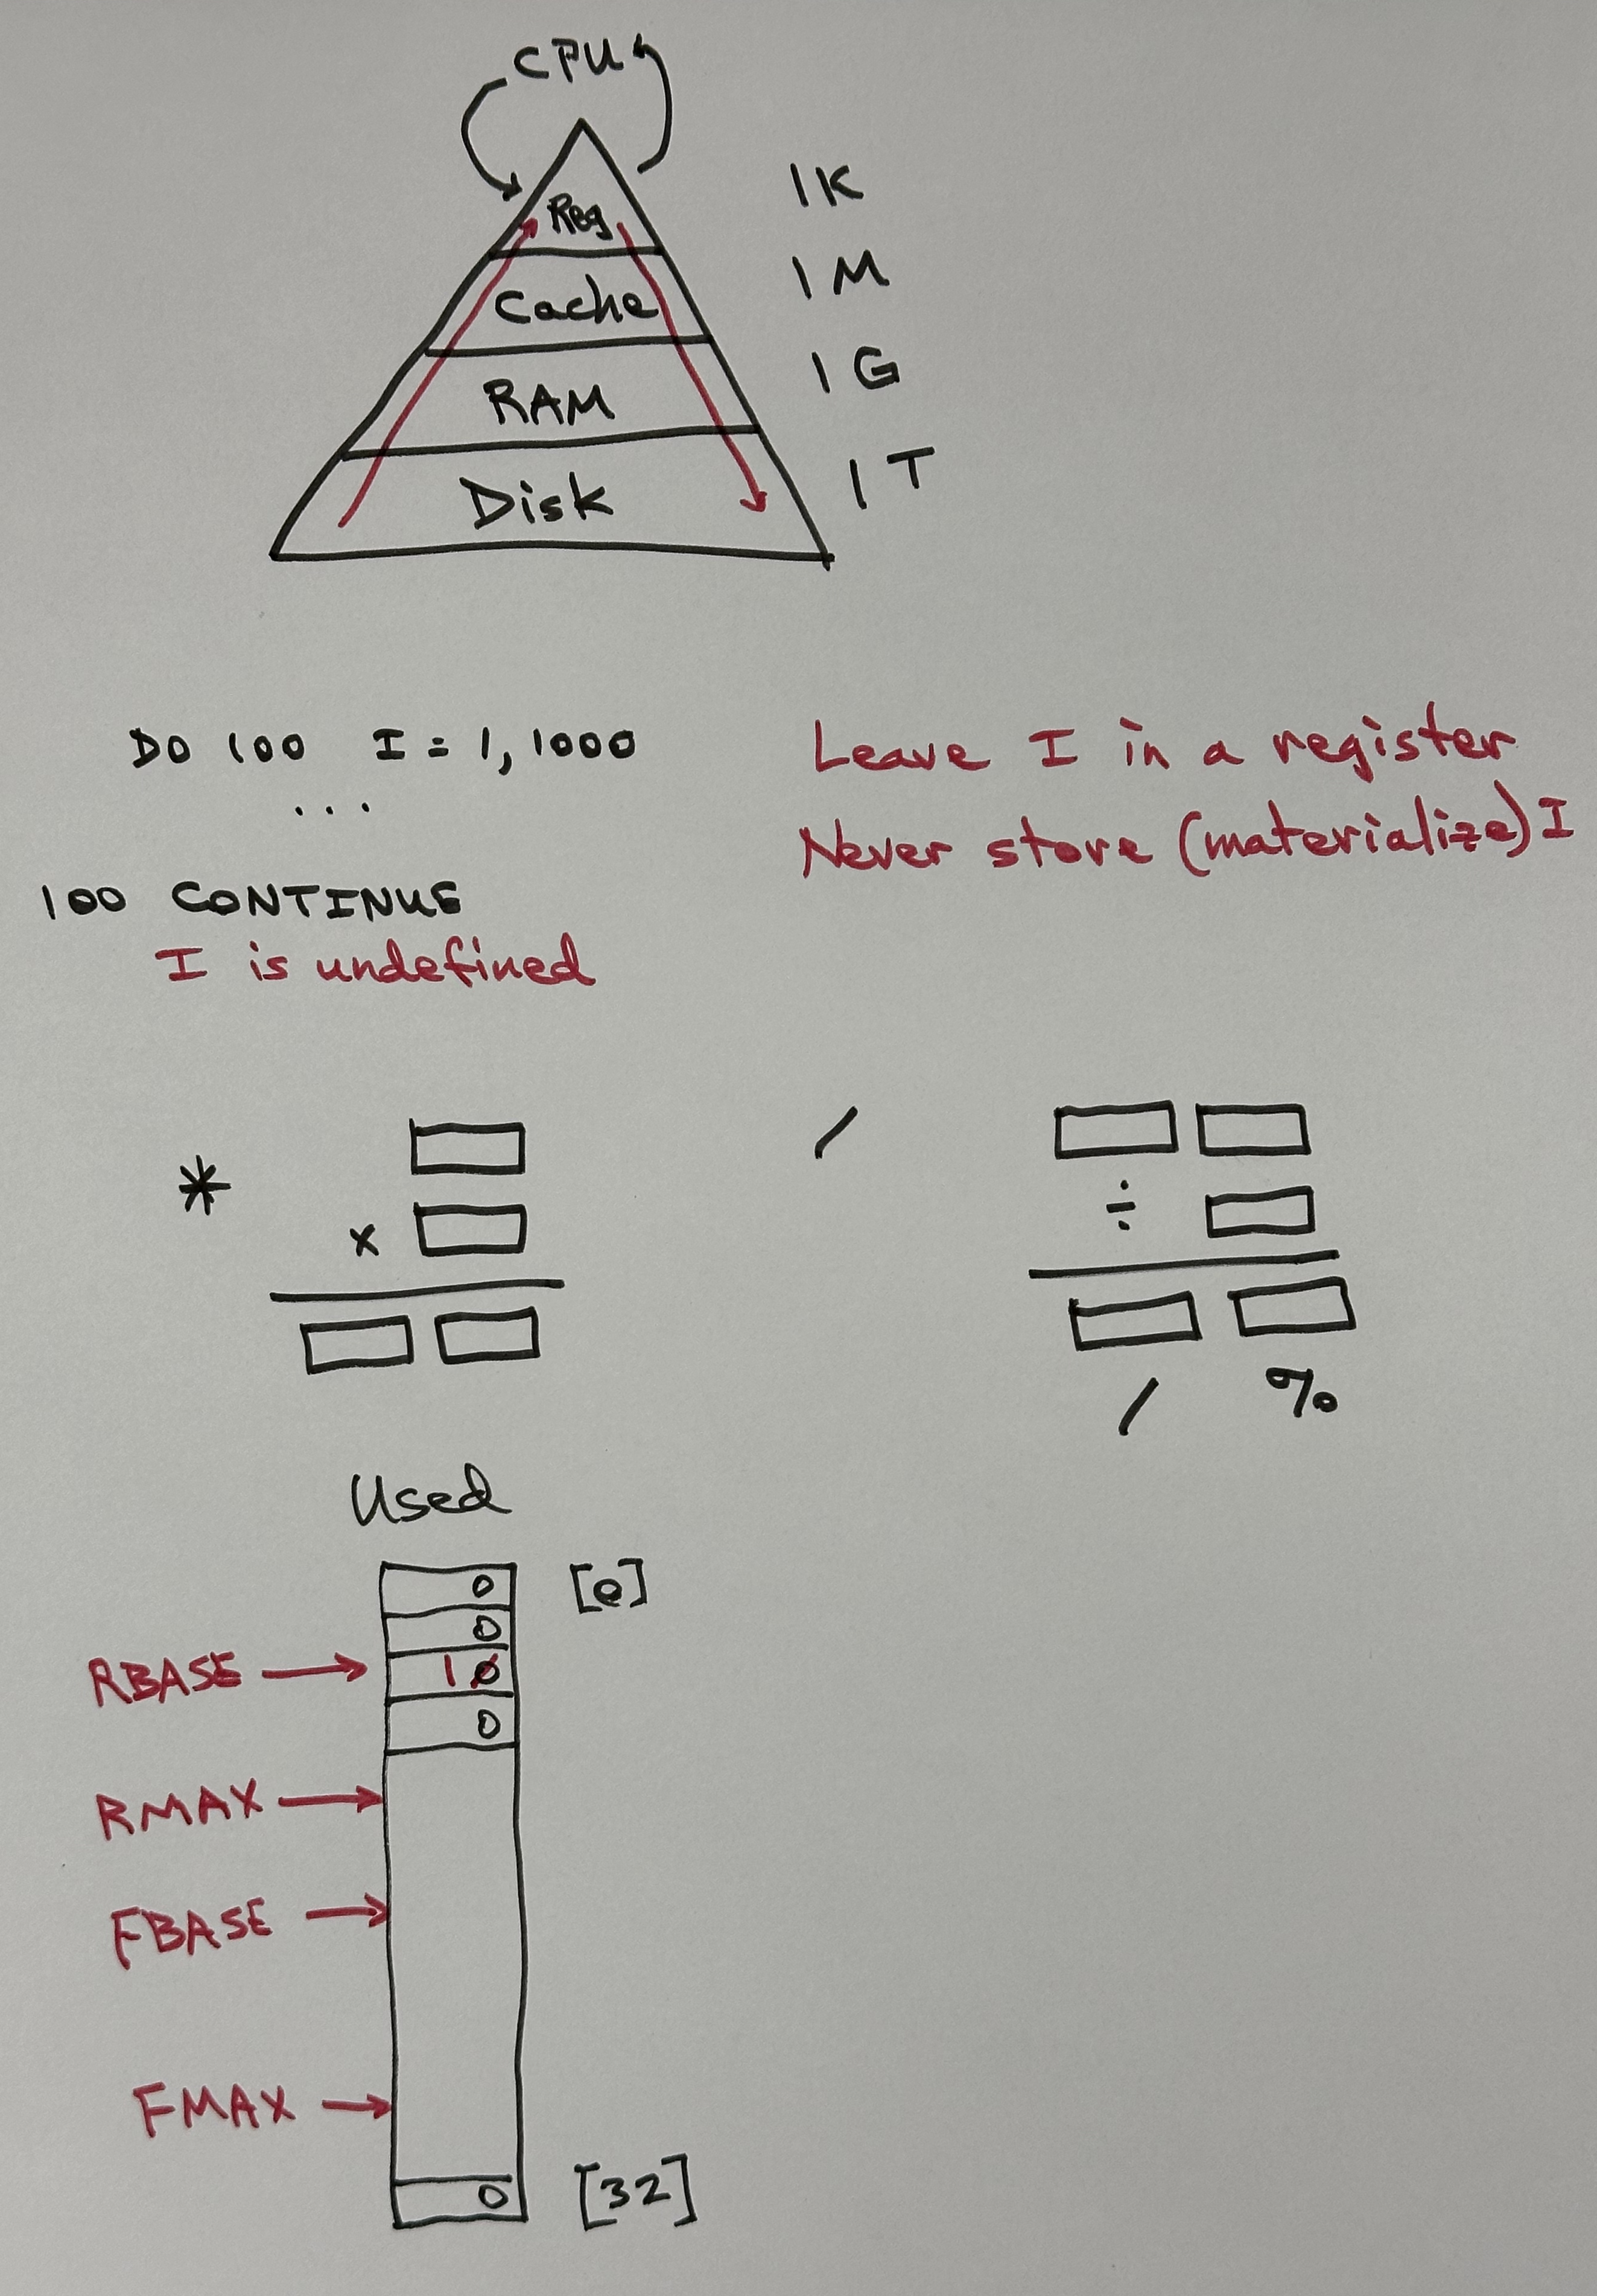 CPU
Reg
1K
Cache
1M
RAM
1G
Disk
1T
DO 100 I = 1, 1000
Leave I in a register
...
Never store (materialize) I
100 CONTINUE
I is undefined
* / ÷
×
/ %
Used
0 [0]
0
RBASE → 1 0
0
RMAX →
FBASE →
FMAX →
0 [32]